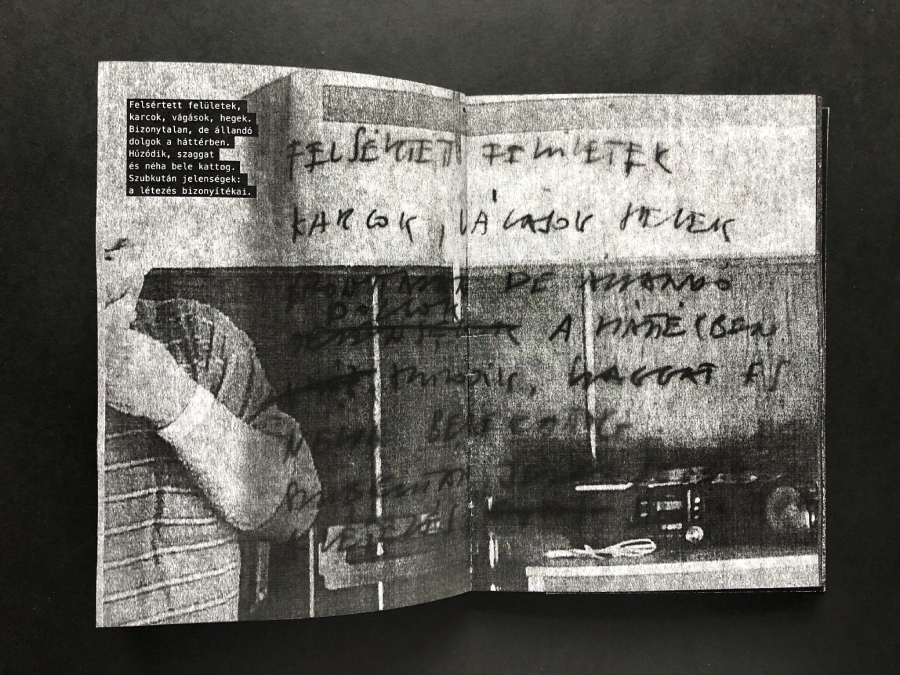 Felsértett felületek,
karcok, vágások, hegek.
Bizonytalan, de állandó
dolgok a háttérben.
Húzódik, szaggat
és néha bele kattog.
Szubkután jelenségek:
a létezés bizonyítékai.
FELSÉRTETT FELÜLETEK
KARCOK, VÁGÁSOK HEGEK
DE ÁLLANDÓ
DOLGOK
A HÁTTÉRBEN
HÚZÓDIK, SZAGGAT ÉS
NÉHA BELE KATTOG
SZUBKUTÁN